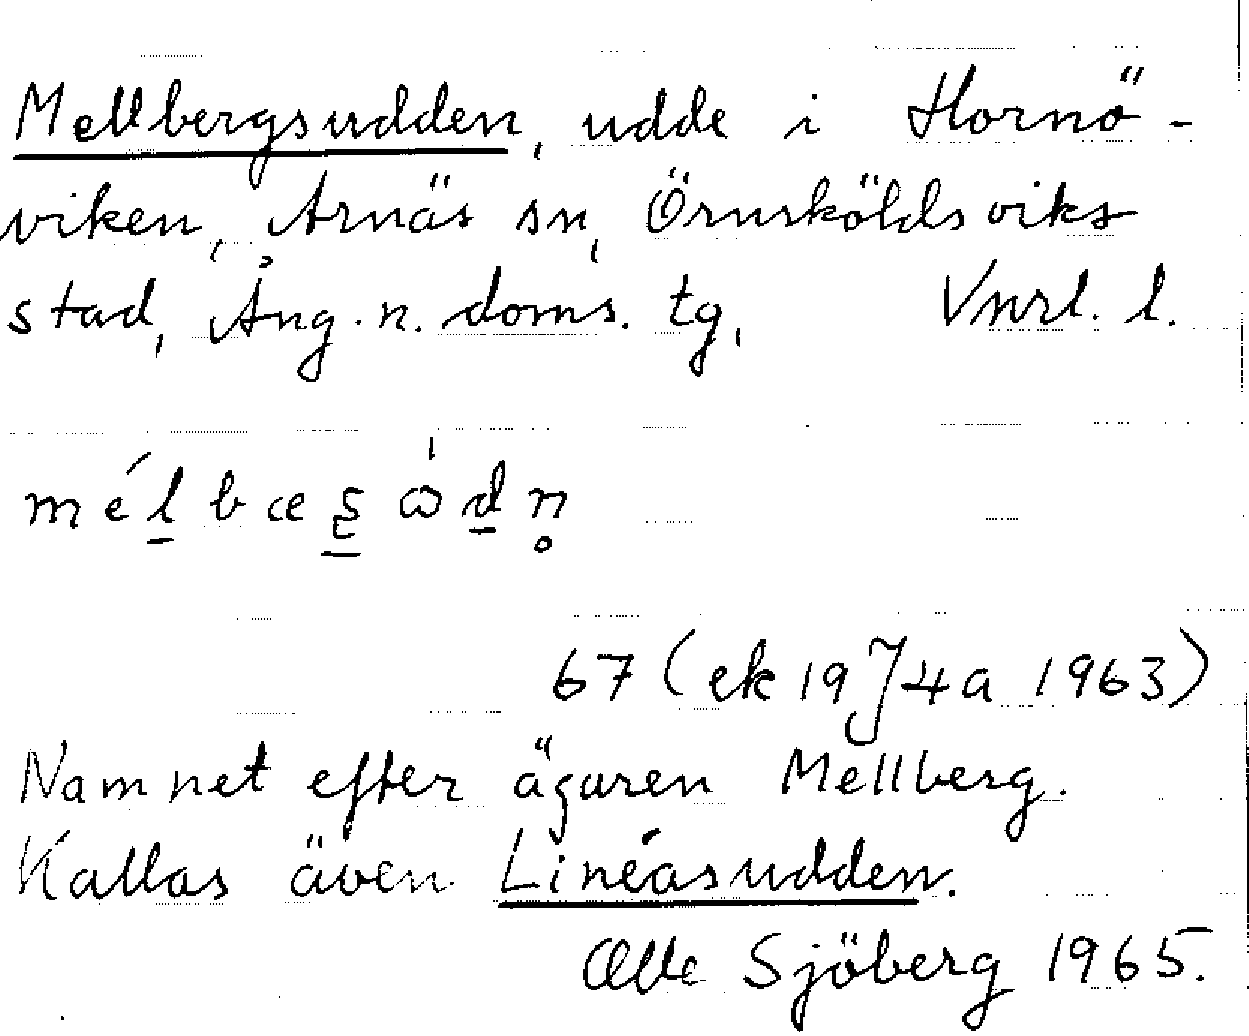 Mellbergsudden, udde i Hornö-
viken, Arnäs sn, Örnsköldsviks
stad, Ång. n. doms. tg, Vnrl. l.
67 (ek 19J4a 1963)
Namnet efter ägaren Mellberg.
Kallas även Linéasudden.
Olle Sjöberg 1965.